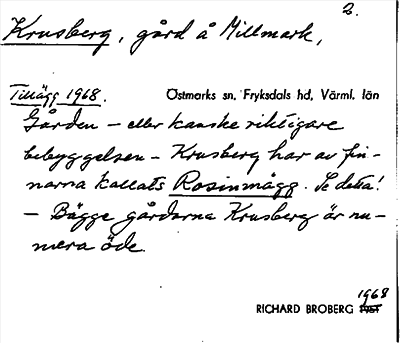 2.
Krusberg, gård å Millmark,
Tillägg 1968. Östmarks sn, Fryksdals hd, Värml. län
Gården – eller kanske riktigare
bebyggelsen – Krusberg har av fin-
narna kallats Rosinmägg. Se detta!
– Bägge gårdarna Krusberg är nu-
mera öde.
1968
RICHARD BROBERG